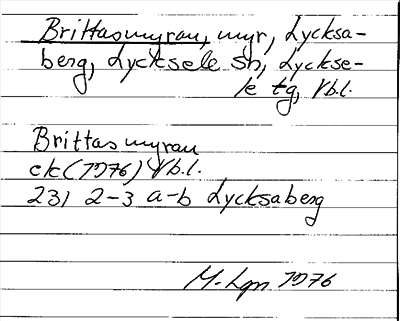 Brittasmyran, myr, Lycksa-
berg, Lycksele sn, Lyckse-
le tg, Vb.l.
Brittasmyran
ek (1976) Vb.l.
231 2-3 a-b Lycksaberg
M. Lgn 1976